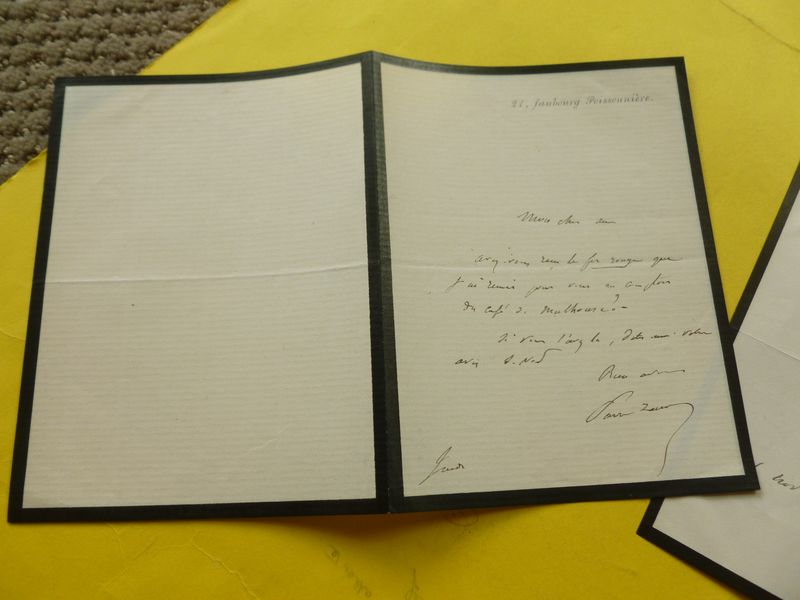 21, faubourg Poissonnière.
Mon cher ami
avez-vous reçu le fer rouge que
j'ai remis pour vous au comptoir
du café de Mulhouse? -
Si vous l'avez lu, dites-moi votre
avis
Bien
Zaccone
Jeudi